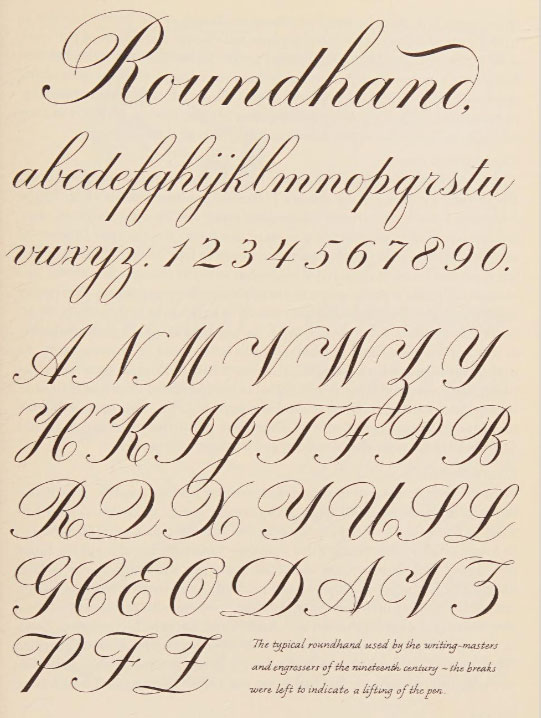 Roundhand,
abcdefghijklmnopqrstu
vwxyz. 1 2 3 4 5 6 7 8 9 0.
A N M V W Z Y
H K I J T F P B
R Q X Y U S L
G C E O D A V Z
P F Z
The typical roundhand used by the writing-masters
and engrossers of the nineteenth century – the breaks
were left to indicate a lifting of the pen.